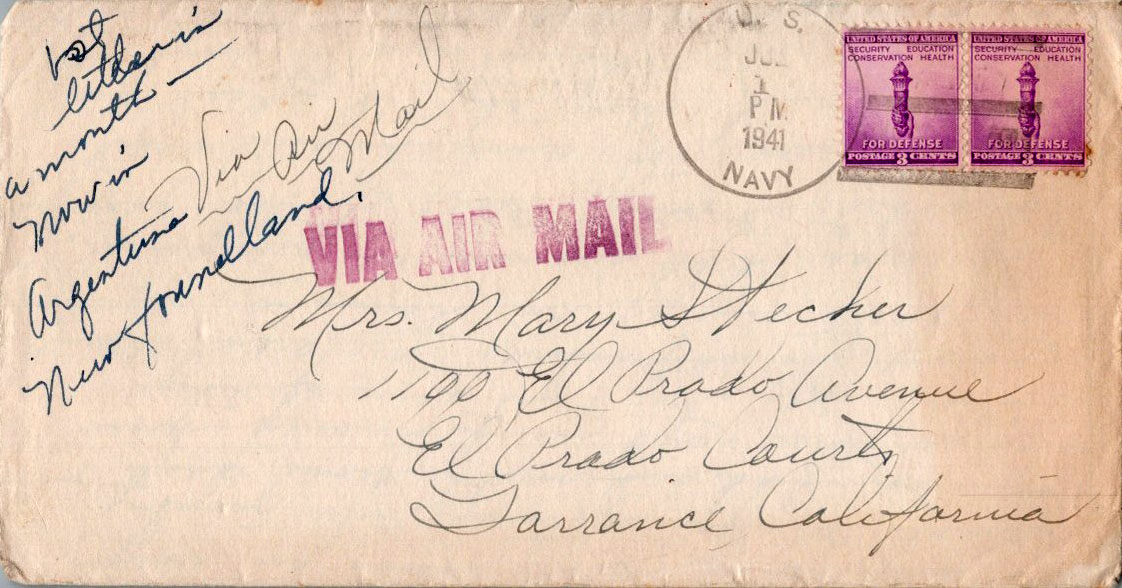 1st
letter in
a month —
now in
Argentina
Newfoundland.
Via Air
Mail
VIA AIR MAIL
U. S.
1
PM
1941
NAVY
UNITED STATES OF AMERICA
SECURITY EDUCATION
CONSERVATION HEALTH
FOR DEFENSE
POSTAGE 3 CENTS
UNITED STATES OF AMERICA
SECURITY EDUCATION
CONSERVATION HEALTH
FOR DEFENSE
POSTAGE 3 CENTS
Mrs. Mary Stecher
1700 El Prado Avenue
El Prado Courts
Torrance, California